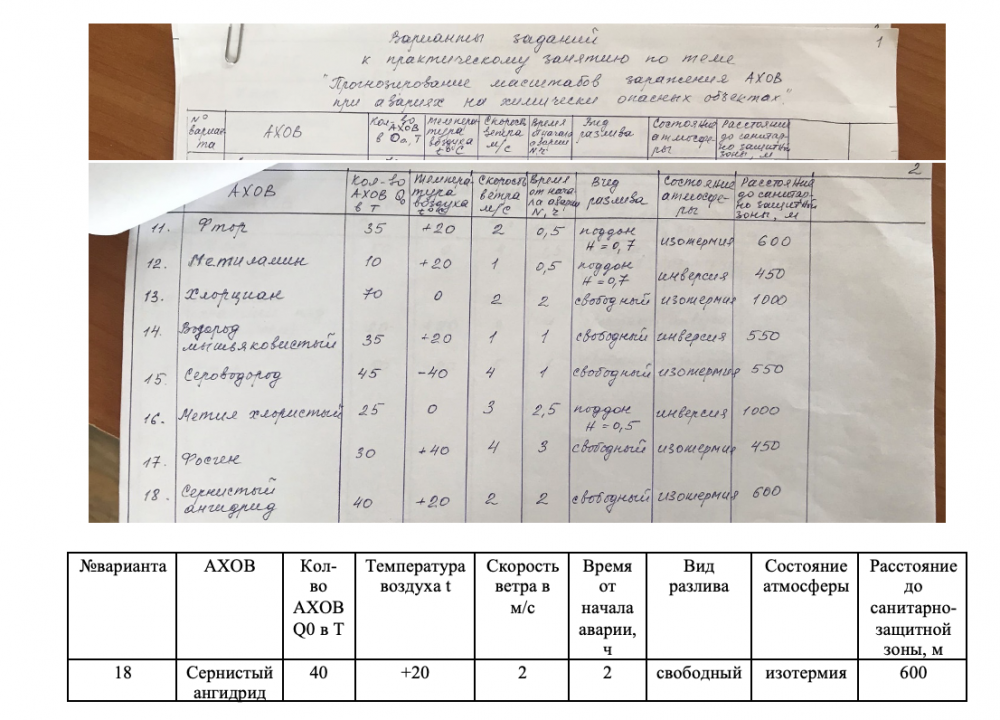 Варианты заданий
1
к практическому занятию по теме
"Прогнозирование масштабов заражения АХОВ
при авариях на химически опасных объектах."
№ вариан та АХОВ Кол-во АХОВ в Qо, Т температура воздуха t°C Скорость ветра м/с Время от начала аварии N, ч Вид разлива Состояние атмосферы Расстояние до санитарно защитной зоны, м
2
АХОВ Кол-во АХОВ Q0 в Т Температура воздуха t°C Скорость ветра м/с Время от начала аварии N, ч Вид разлива Состояние атмосферы Расстояние до санитарно защитной зоны, м
11. Фтор 35 +20 2 0,5 поддон H = 0,7 изотермия 600
12. Метиламин 10 +20 1 0,5 поддон H = 0,7 инверсия 450
13. Хлорциан 70 0 2 2 свободный изотермия 1000
14. Водород мышьяковистый 35 +20 1 1 свободный инверсия 550
15. Сероводород 45 -40 4 1 свободный изотермия 550
16. Метил хлористый 25 0 3 2,5 поддон H = 0,5 инверсия 1000
17. Фосген 30 +40 4 3 свободный изотермия 450
18. Сернистый ангидрид 40 +20 2 2 свободный изотермия 600
№варианта АХОВ Кол-во АХОВ Q0 в Т Температура воздуха t Скорость ветра в м/с Время от начала аварии, ч Вид разлива Состояние атмосферы Расстояние до санитарно-защитной зоны, м
18 Сернистый ангидрид 40 +20 2 2 свободный изотермия 600